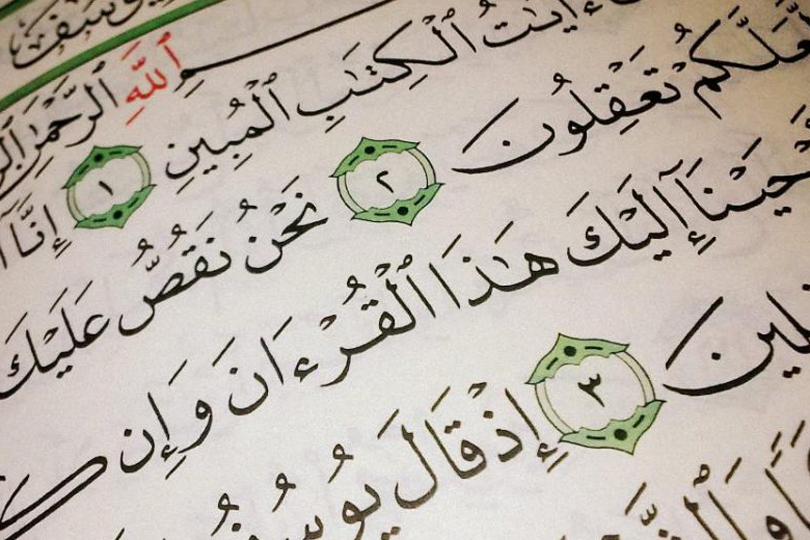 ٱللَّهِ ٱلرَّحْمَٰنِ
ءَايَٰتُ ٱلْكِتَٰبِ ٱلْمُبِينِ ١ إِنَّآ
لَّعَلَّكُمْ تَعْقِلُونَ ٢ نَحْنُ نَقُصُّ عَلَيْكَ
حَيْنَآ إِلَيْكَ هَٰذَا ٱلْقُرْءَانَ وَإِن
لِينَ ٣ إِذْ قَالَ يُوسُفُ